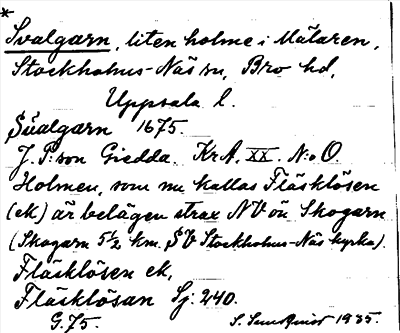 *
Svalgarn, liten holme i Mälaren,
Stockholms-Näs sn, Bro hd,
Uppsala l.
Svalgarn 1675.
J. P:son Giedda. KrA. XX. N:o O.
Holmen, som nu kallas Fläsklösen
(ek) är belägen strax NV ön Skogarn
(Skogarn 5½ km. SV Stockholms-Näs kyrka).
Fläsklösen ek,
Fläsklösan Sj: 240.
G. 75. S. 1935.